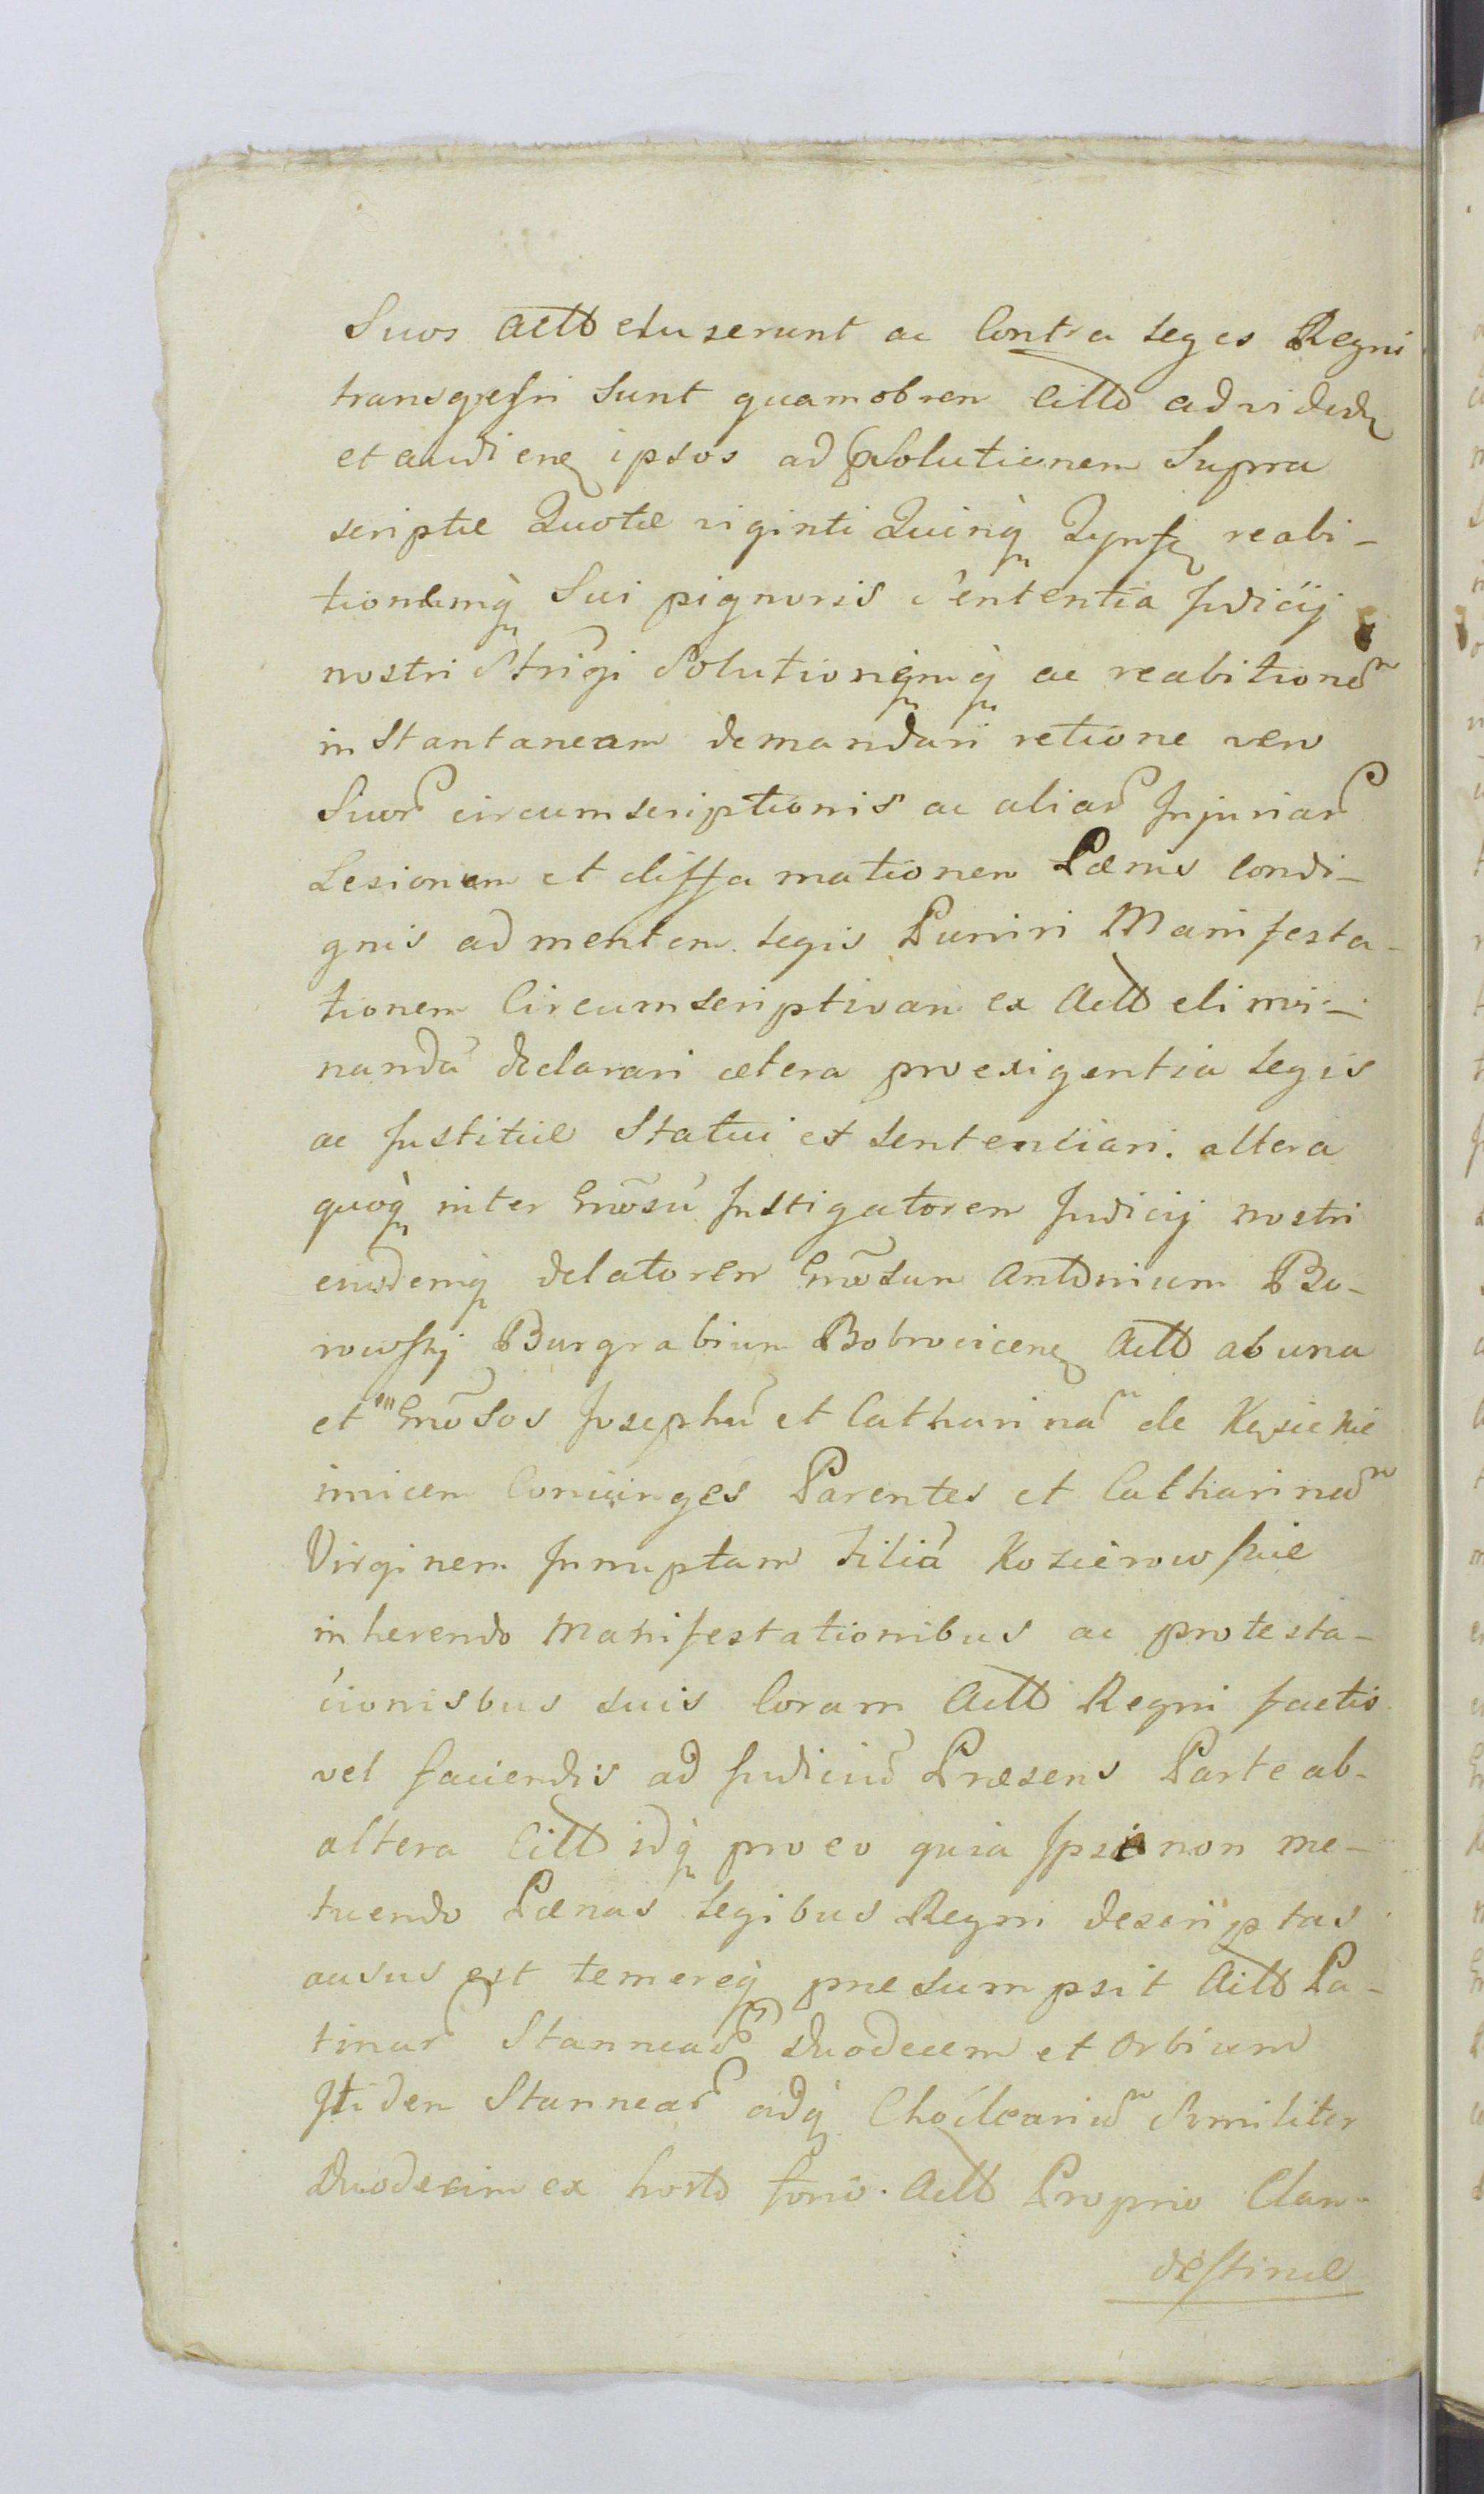 Suos Actt eluserunt ac Contra Leges Regni
transgressi sunt quamobrem Citt ad vidend
et audiend ipsos ad psolutionem Supra
scriptæ Quotæ viginti Quinq Tynf reabi-
tionemq Sui pignoris sententia Judicij
nostri Stringi Solutionemq ac reabitionem
instantaneam demandari ratione vero
Suor circumscriptionis ac aliar Injuriar
Lesionem et diffamationem Pænis condi-
gnis ad mentem Legis Puniri Manifesta-
tionem Circumscriptivam ex Actt elimi-
nandã declarari cetera pro exigentia Legis
ac Justitiæ Statui et sententiari. altera
quoq inter Gnõsũ Instigatorem Judicij nostri
eiusdemq delatorem Gnõsum Antonium Bo-
rowskj Burgrabium Bobrovicen Actt ab una
et Gnõsos Josephũ et Catharinã de
invicem Coniuinges Parentes et Catharinam
Virginem Innuptam Filiã Kozierowskie
inherendo Manifestationibus ac protesta-
cionisbus suis Coram Actt Regni factis
vel faciendis ad Judiciũ Præsens Parte ab-
altera Citt idq pro eo quia Ipsi non me-
tuendo Pænas Legibus Regni descriptas
ausus est temereq præsumpsit Actt Pa-
tinar Stannear duodecem et Orbium
Itidem Stannear adq Chocleariũm Similiter
Duodecim ex horto Actt Proprio Clan-
destinæ